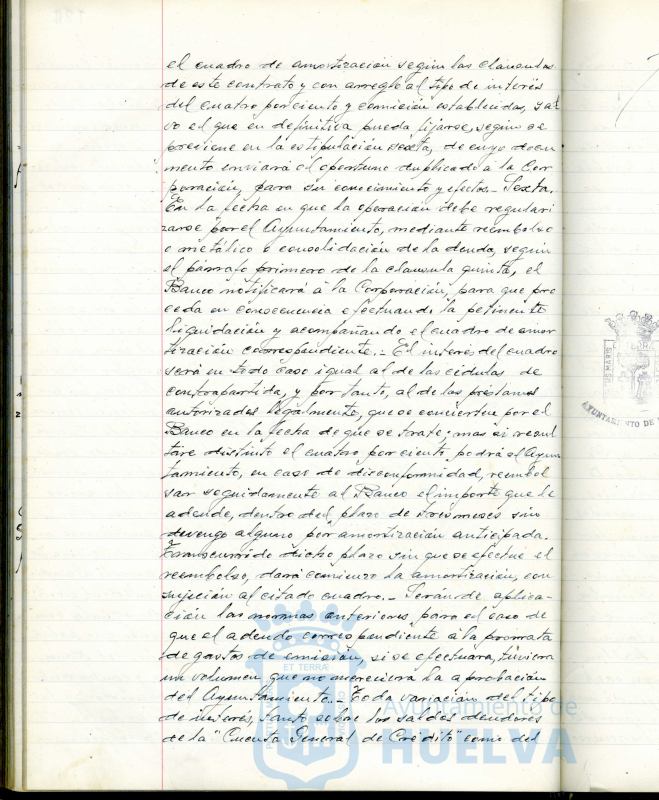 el cuadro de amortización según las cláusulas
de este contrato y con arreglo al tipo de interés
del cuatro por ciento y comisión establecidas, sal
vo el que en definitiva pueda fijarse, según se
previene en la estipulación sexta, de cuyo docu-
mento enviará el oportuno duplicado á la Cor
poración, para su conocimiento y efectos.- Sexta.
En la fecha en que la operación debe regulari
zarse por el Ayuntamiento, mediante reembolso
o metálico o consolidación de la deuda, según
el párrafo primero de la cláusula quinta, el
Banco notificará á la Corporación, para que pro
ceda en consecuencia efectuando la pertinente
liquidación y acompañando el cuadro de amor
tización correspondiente.- El interés del cuadro
será en todo caso igual al de las cédulas de
contrapartida, y por tanto, al de los préstamos
autorizados legalmente, que se concierten por el
Banco en la fecha de que se trate; mas si resul
tare distinto el cuatro por ciento, podrá el Ayun
tamiento, en caso de disconformidad, reembol
sar seguidamente al Banco el importe que le
adeude, dentro del plazo de tres meses sin
devengo alguno por amortización anticipada.
Transcurrido dicho plazo sin que se efectúe el
reembolso, dará comienzo la amortización, con
sujeción al citado cuadro.- Serán de aplica-
ción las normas anteriores para el caso de
que el adeudo correspondiente á la prorrata
de gastos de emisión, si se efectuara, tuviera
un volumen que no mereciera la aprobación
del Ayuntamiento.- Toda variación del tipo
de interés, tanto sobre los saldos deudores
de la "Cuenta General de Crédito" como del
ET TERRAE
Ayuntamiento de
HUELVA
AYUNTAMIENTO DE